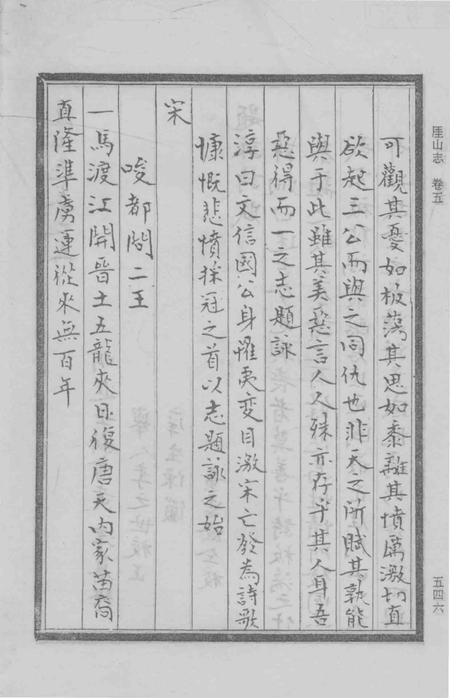 厓山志 卷五
五四六
可觀其憂如板蕩其思如黍離其憤厲激切直
欲起三公而與之同仇也非天之所賦其孰能
與于此雖其美惡言人人殊亦存乎其人耳吾
惡得而一之志題詠
淳曰文信國公身懼夷变目激宋亡發為詩歌
慷慨悲憤採冠之首以志題詠之始
宋
唆都問二王
一馬渡江開晉土五龍夾日復唐天內家苗裔
真隆準虜運從來無百年